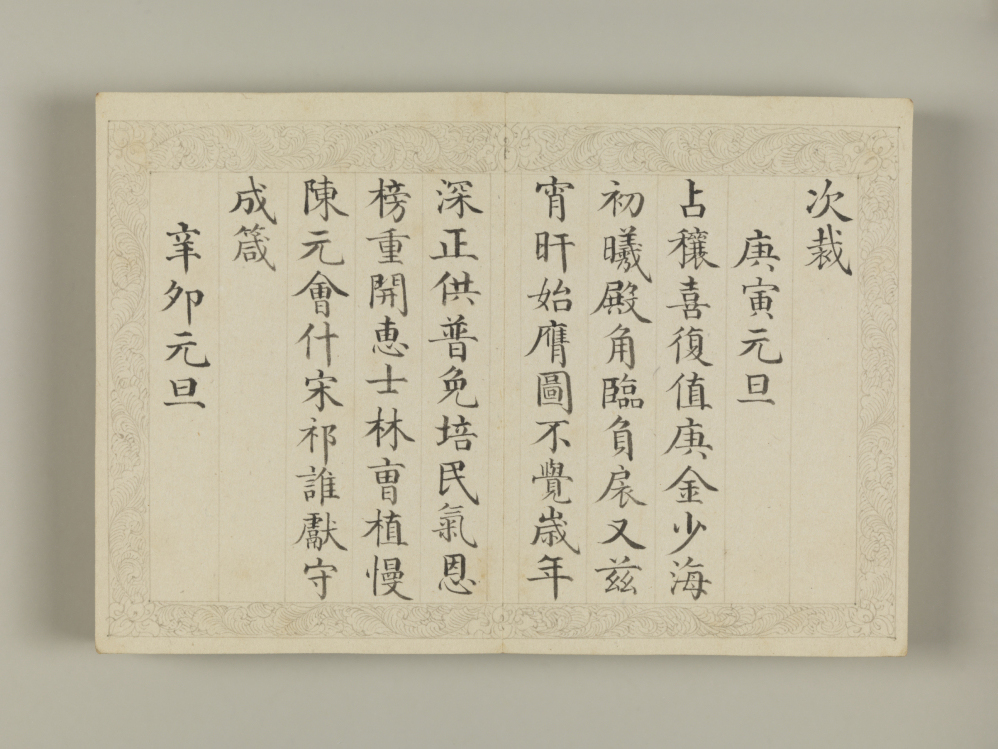 次裁
庚寅元旦
占穰喜復值庚金少海
初曦殿角臨負扆又茲
宵旰始膺圖不覺歲年
深正供普免培民氣恩
榜重開惠士林曺植慢
陳元會什宋祁誰獻守
成箴
辛卯元旦